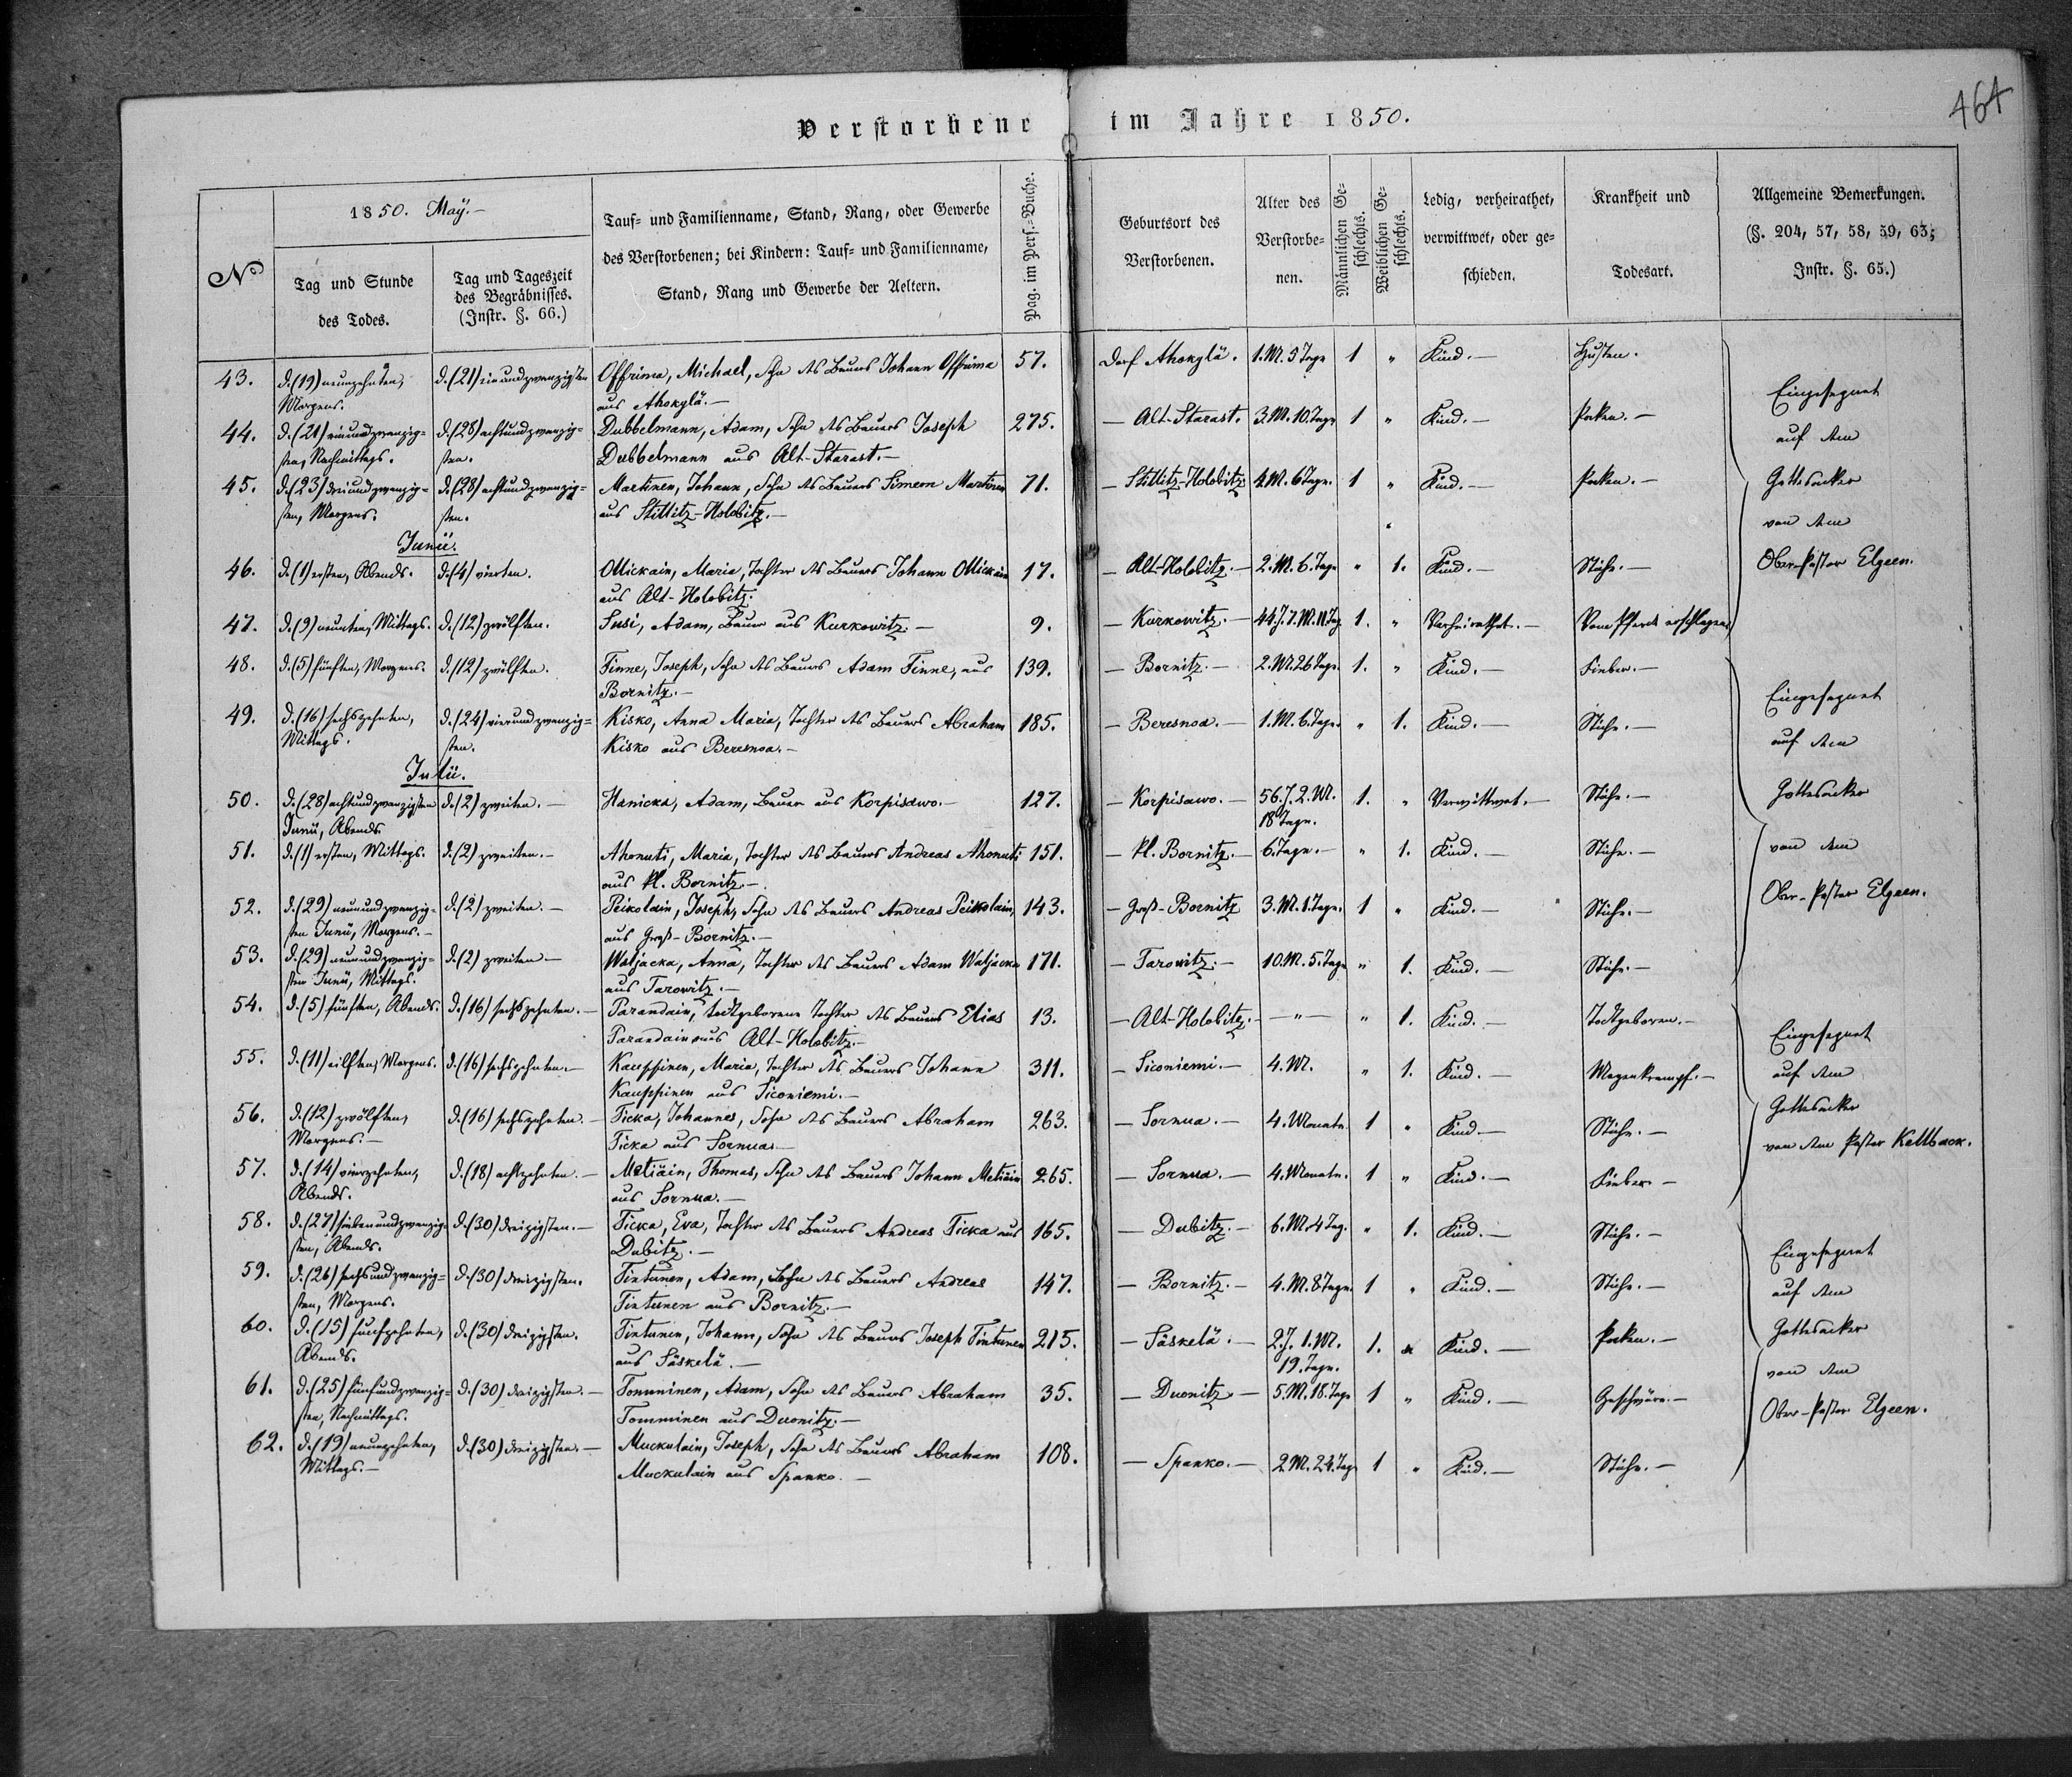 464
Verstorbene im Jahre 1850.
No
1850. Maÿ.-
Tag und Stunde des Todes.
Tag und Tageszeit des Begräbnisses. (Instr. §. 66.)
Tauf- und Familienname, Stand, Rang, oder Gewerbe
des Verstorbenen; bei Kindern: Tauf- und Familienname,
Stand, Rang und Gewerbe der Aeltern.
Pag. im Pers.-Buche.
Geburtsort des Verstorbenen.
Alter des Verstorbe-nen.
Männlichen Ge-schlechts.
Weiblichen Ge-schlechts.
Ledig, verheirathet, verwittwet, oder ge-schieden.
Krankheit und Todesart.
Allgemeine Bemerkungen. (§. 204, 57, 58, 59, 63; Instr. §. 65.)
43. d. (19) neunzehnten, d. (21) einundzwanzigsten Offrima, Michael, Sohn des Bauers Johann Offrima 57. Dorf Ahokylä. 1. M. 5 Tage 1 " Kind.- Husten.
Morgens. aus Ahokylä.-
44. d. (21) einundzwanzig= d. (28) achtundzwanzig= Dubbelmann, Adam, Sohn des Bauers Joseph 275. - Alt-Starast. 3. M. 10. Tage 1 " Kind.- Pocken.-
sten, Nachmittags. sten. Dubbelmann aus Alt-Starast.-
45. d. (23) dreiundzwanzig= d. (28) achtundzwanzig= Martinen, Johann, Sohn des Bauers Simem Martinen 71. - Stillitz-Holobitz 4. M. 6 Tage. 1 " Kind.- Pocken.-
sten, Morgens. sten. aus Stillitz-Holobitz.-
Junii.
46. d. (1) ersten, Abends. d. (4) vierten. Ollickain, Maria, Tochter des Bauers Johann Ollickain 17. - Alt-Holobitz.- 2. M. 6. Tage " 1. Kind.- Stiche.-
aus Alt-Holobitz.
47. d. (9) neunten, Mittags. d. (12) zwölften. Susi, Adam, Bauer aus Kurkowitz.- 9. - Kurkowitz.- 44 J. 7. M. 11 Tag 1. " Verheirathet.- Vom Pferde erschlagen
48. d. (5) fünften, Morgens. d. (12) zwölften. Finne, Joseph, Sohn des Bauers Adam Finne, aus 139. - Bornitz.- 2. M. 26 Tage. 1. " Kind.- Fieber.-
Bornitz.-
49. d. (16) sechszehnten, d. (24) vierundzwanzig= Kisko, Anna Maria, Tochter des Bauers Abraham 185. - Beresnoa.- 1. M. 6. Tage. " 1. Kind.- Stiche.-
Mittags. sten. Kisko aus Beresnoa.-
Eingesegnet
auf dem
Gottesacker
von dem
Ober-Pastor Elgeen.
Julii.
50. d. (28) achtundzwanzigsten d. (2) zweiten.- Hanicka, Adam, Bauer aus Korpisawo.- 127. - Korpisawo.- 56. J. 2. M. 1. " Verwittwet.- Stiche.-
Junii, Abends 18 Tage.
51. d. (1) ersten, Mittags. d. (2) zweiten.- Ahonuti, Maria, Tochter des Bauers Andreas Ahonuti 151. - Kl. Bornitz.- 6. Tage.- " 1. Kind.- Stiche.-
aus Kl. Bornitz.-
52. d. (29) neunundzwanzig= d. (2) zweiten.- Peikolain, Joseph, Sohn des Bauers Andreas Peikolain, 143. - Groß-Bornitz 3. M. 1. Tage. 1 " Kind.- Stiche.-
sten Junii, Morgens.- aus Groß-Bornitz.-
53. d. (29) neunundzwanzig= d. (2) zweiten- Watjacka, Anna, Tochter des Bauers Adam Watjacka 171. - Tarowitz.- 10. M. 5. Tage " 1. Kind.- Stiche.-
sten Junii, Mittags. aus Tarowitz.-
Eingesegnet
auf dem
Gottesacker
von dem
Ober-Pastor Elgeen.
54. d. (5) fünften, Abends. d. (16) sechszehnten.- Parandain, todtgeborene Tochter des Bauers Elias 13. - Alt-Holobitz.- -"- " 1. Kind.- Todtgeboren.-
Parandain aus Alt-Holobitz.-
55. d. (11) eilften, Morgens. d. (16) sechszehnten.- Kauppinen, Maria, Tochter des Bauers Johann 311. - Siconiemi.- 4. M. " 1. Kind.- Magenkrampf.-
Kauppinen aus Siconiemi.-
56. d. (12) zwölften, d. (16) sechszehnten.- Ticka, Johannes, Sohn des Bauers Abraham 263. - Sornua.- 4. Monate. 1 " Kind- Stiche.-
Morgens.- Ticka aus Sornua.-
57. d. (14) vierzehnten, d. (18) achtzehnten.- Metiäin, Thomas, Sohn des Bauers Johann Metiäin 265. - Sornua.- 4. Monate. 1 " Kind.- Fieber.-
Abends. aus Sornua.-
Eingesegnet
auf dem
Gottesacker
von dem Pastor Kellback.
58. d. (27) siebenundzwanzig= d. (30) dreizigsten.- Ticka, Eva, Tochter des Bauers Andreas Ticka aus 165. - Dubitz.- 6. M. 4 Tag. " 1. Kind.- Stiche.-
sten, Abends. Dubitz.-
59. d. (26) sechsundzwanzig= d. (30) dreizigsten. Tintunen, Adam, Sohn des Bauers Andreas 147. - Bornitz.- 4. M. 8 Tage. 1 " Kind.- Stiche.-
sten, Morgens. Tintunen aus Bornitz.-
60. d. (15) funfzehnten, d. (30) dreizigsten. Tintunen, Johann, Sohn des Bauers Joseph Tintunen 215. - Säskelä.- 2. J. 1. M. 1. Kind.- Pocken.-
Abends. aus Säskelä.- 19. Tage.
61. d. (25) fünfundzwanzig= d. (30) dreizigsten.- Tomminen, Adam, Sohn des Bauers Abraham 35. - Duonitz- 5. M. 18. Tage 1 " Kind.- Geschwüre.-
sten, Nachmittags. Tomminen aus Duonitz.-
62. d. (19) neunzehnten, d. (30) dreizigsten.- Muckulain, Joseph, Sohn des Bauers Abraham 108. - Spanko.- 2. M. 24. Tage 1 " Kind.- Stiche.-
Mittags.- Muckulain aus Spanko.-
Eingesegnet
auf dem
Gottesacker
von dem
Ober-Pastor Elgeen.